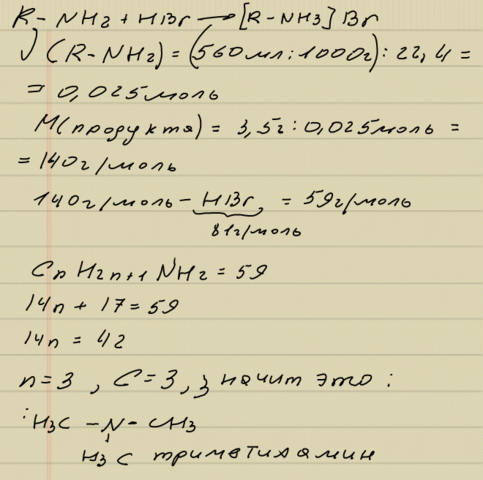 R-NH2 + HBr → [R-NH3] Br
√(R-NH2) = (560мл : 1000г) : 22,4 =
= 0,025моль
M(продукта) = 3,5г : 0,025моль =
= 140г/моль
140г/моль - HBr = 59г/моль
81г/моль
CnH2n+1NH2 = 59
14n + 17 = 59
14n = 42
n=3, C=3, значит это :
: H3C - N - CH3
H3C триметиламин